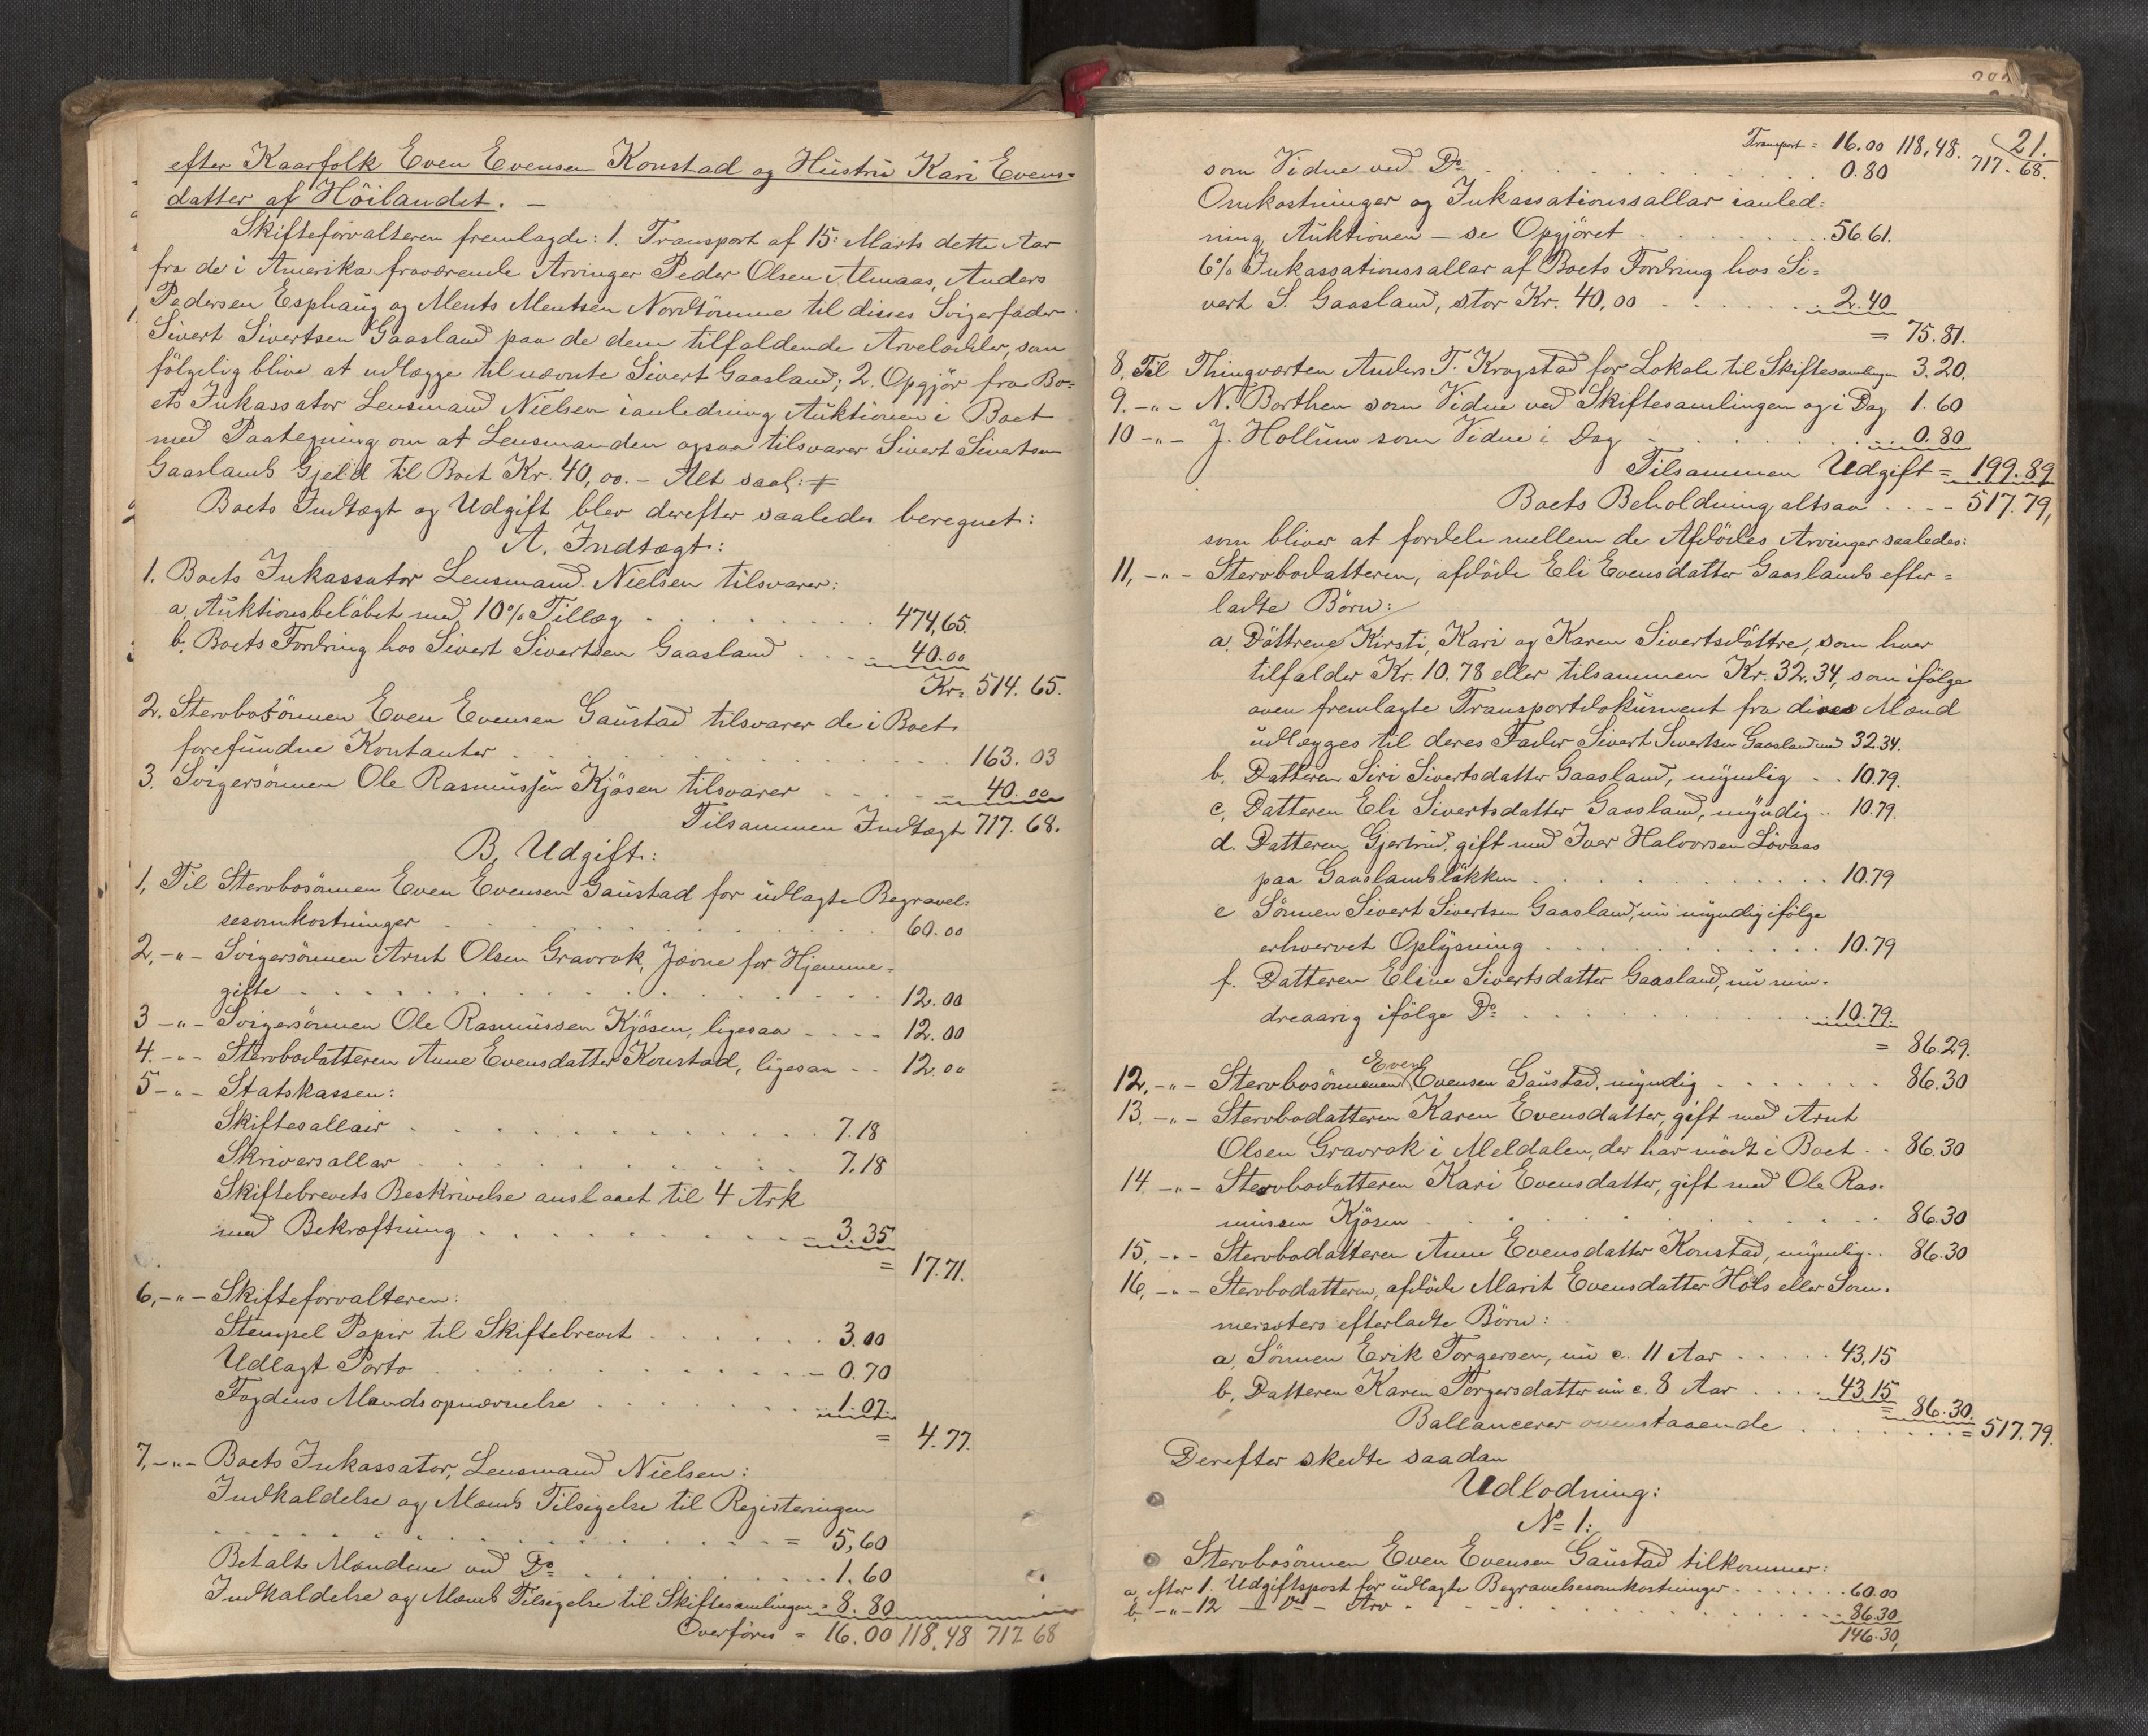 efter Kaarfolk Even Evensen Konstad og Hustru Kari Evens=
datter af Höilandet. —
Skifteforvalteren fremlagde: 1. Transport af 15: Marts dette Aar
fra de i Amerika fraværende Arvinger Peder Olsen Almaas, Anders
Pedersen Esphaug og Ments Mentsen Nordtömme til disses Svigerfader
Sivert Sivertsen Gaasland paa de dem tilfaldende Arvelodder, som
fölgelig blive at udlægge til nævnte Sivert Gaasland; 2. Opgjör fra Bo=
ets Inkassator Lensmand Nielsen ianledning Auktionen i Boet
med Paategning om at Lensmanden ogsaa tilsvarer Sivert Sivertsen
Gaaslands Gjeld til Boet Kr. 40,00. – Alt saal:
Boets Indtægt og Udgift blev derefter saaledes beregnet:
A. Indtægt:
1. Boets Inkassator Lensmand Nielsen tilsvarer:
a. Auktionsbelöbet med 10% Tillæg . . . 474,65.
b. Boets Fordring hos Sivert Sivertsen Gaasland . . . 40.00
Kr. 514. 65.
2. Stervbosönnen Even Evensen Gaustad tilsvarer de i Boet
forefundne Kontanter . . . 163. 03
3. Svigersönnen Ole Rasmussen Kjösen tilsvarer . . . 40. 00
Tilsammen Indtægt 717. 68.
B. Udgift:
1, Til Stervbosönnen Even Evensen Gaustad for udlagte Begravel=
sesomkostninger . . . 60.00
2, -„- Svigersönnen Arnt Olsen Gravrok, Jævne for Hjemme=
gifte . . . 12.00
3 -„- Svigersönnen Ole Rasmussen Kjösen, ligesaa . . . 12.00
4. -„- Stervbodatteren Anne Evensdatter Konstad, ligesaa . . 12.00
5 -„- Statskassen:
Skiftesallair . . . 7.18
Skriversallar . . . 7.18
Skiftebrevets Beskrivelse anslaaet til 4 Ark
med Bekræftning . . . 3.35
= 17.71.
6, -„- Skifteforvalteren:
Stempel Papir til Skiftebrevet . . . 3.00
Udlagt Porto . . . 0.70
Fogdens Mandsopnævnelse . . . 1.07.
= 4.77.
7, -„- Boets Inkassator, Lensmand Nielsen:
Indkaldelse og Mænds Tilsigelse til Registeringen
. . . = 5,60
Betalte Mændene ved Do . . . 1.60
Indkaldelse og Mænds Tilsigelse til Skiftesamlingen = 8. 80
Overföres = 16.00 118,48 717 68
21.
Transport = 16.00 118,48. 717. 68.
som Vidne ved Do . . . 0.80
Omkostninger og Inkassationssallar ianled=
ning Auktionen – se Opgjöret . . . 56.61.
6% Inkassationssallar af Boets Fordring hos Si=
vert S. Gaasland, stor Kr. 40,00 . . . 2.40
= 75.81.
8, Til Thingværten Anders T. Krogstad for Lokale til Skiftesamlingen 3.20.
9. -„- N. Borthen som Vidne ved Skiftesamlingen og i Dag 1.60
10 -„- J. Hollum som Vidne i Dag . . . 0.80
Tilsammen Udgift = 199.89
Boets Beholdning altsaa . . . 517.79,
som bliver at fordele mellem de Afdödes Arvinger saaledes:
11, -„- Stervbodatteren, afdöde Eli Evensdatter Gaaslands efter=
ladte Börn:
a. Döttrene Kirsti, Kari og Karen Sivertsdöttre, som hver
tilfalder Kr. 10.78 eller tilsammen Kr. 32.34, som ifölge
oven fremlagte Transportdokument fra disses Mænd
udlægges til deres Fader Sivert Sivertsen Gaasland med 32.34.
b. Datteren Siri Sivertsdatter Gaasland, myndig . . 10.79.
c. Datteren Eli Sivertsdatter Gaasland, myndig . . 10.79.
d. Datteren Gjertrud, gift med Iver Halvorsen Lövaas
paa Gaaslandslökken . . . 10.79
e Sönnen Sivert Sivertsen Gaasland, nu myndig ifölge
erhvervet Oplysning . . . 10.79
f. Datteren Eline Sivertsdatter Gaasland, nu min=
dreaarig ifölge Do . . . 10.79.
= 86.29.
12, -„- Stervbosönnen Even Evensen Gaustad, myndig . . . 86.30
13. -„- Stervbodatteren Karen Evensdatter, gift med Arnt
Olsen Gravrok i Meldalen, der har mödt i Boet . . 86.30
14 -„- Stervbodatteren Kari Evensdatter, gift med Ole Ras=
mussen Kjösen . . . 86.30
15, -„- Stervbodatteren Anne Evensdatter Konstad, myndig . . 86.30
16, -„- Stervbodatteren, afdöde Marit Evensdatter Hols eller Som=
mersæters efterladte Börn:
a, Sönnen Erik Torgersen, nu c. 11 Aar . . . 43,15
b. Datteren Karen Torgersdatter nu c. 8 Aar . . . 43.15
= 86.30.
Ballancerer ovenstaaende . . . = 517.79.
Derefter skedte saadan
Udlodning:
No 1:
Stervbosönnen Even Evensen Gaustad tilkommer:
a, efter 1. Udgiftspost for udlagte Begravelsesomkostninger . . . 60.00
b, -„- 12 — Do – Arv . . . 86.30
146.30,